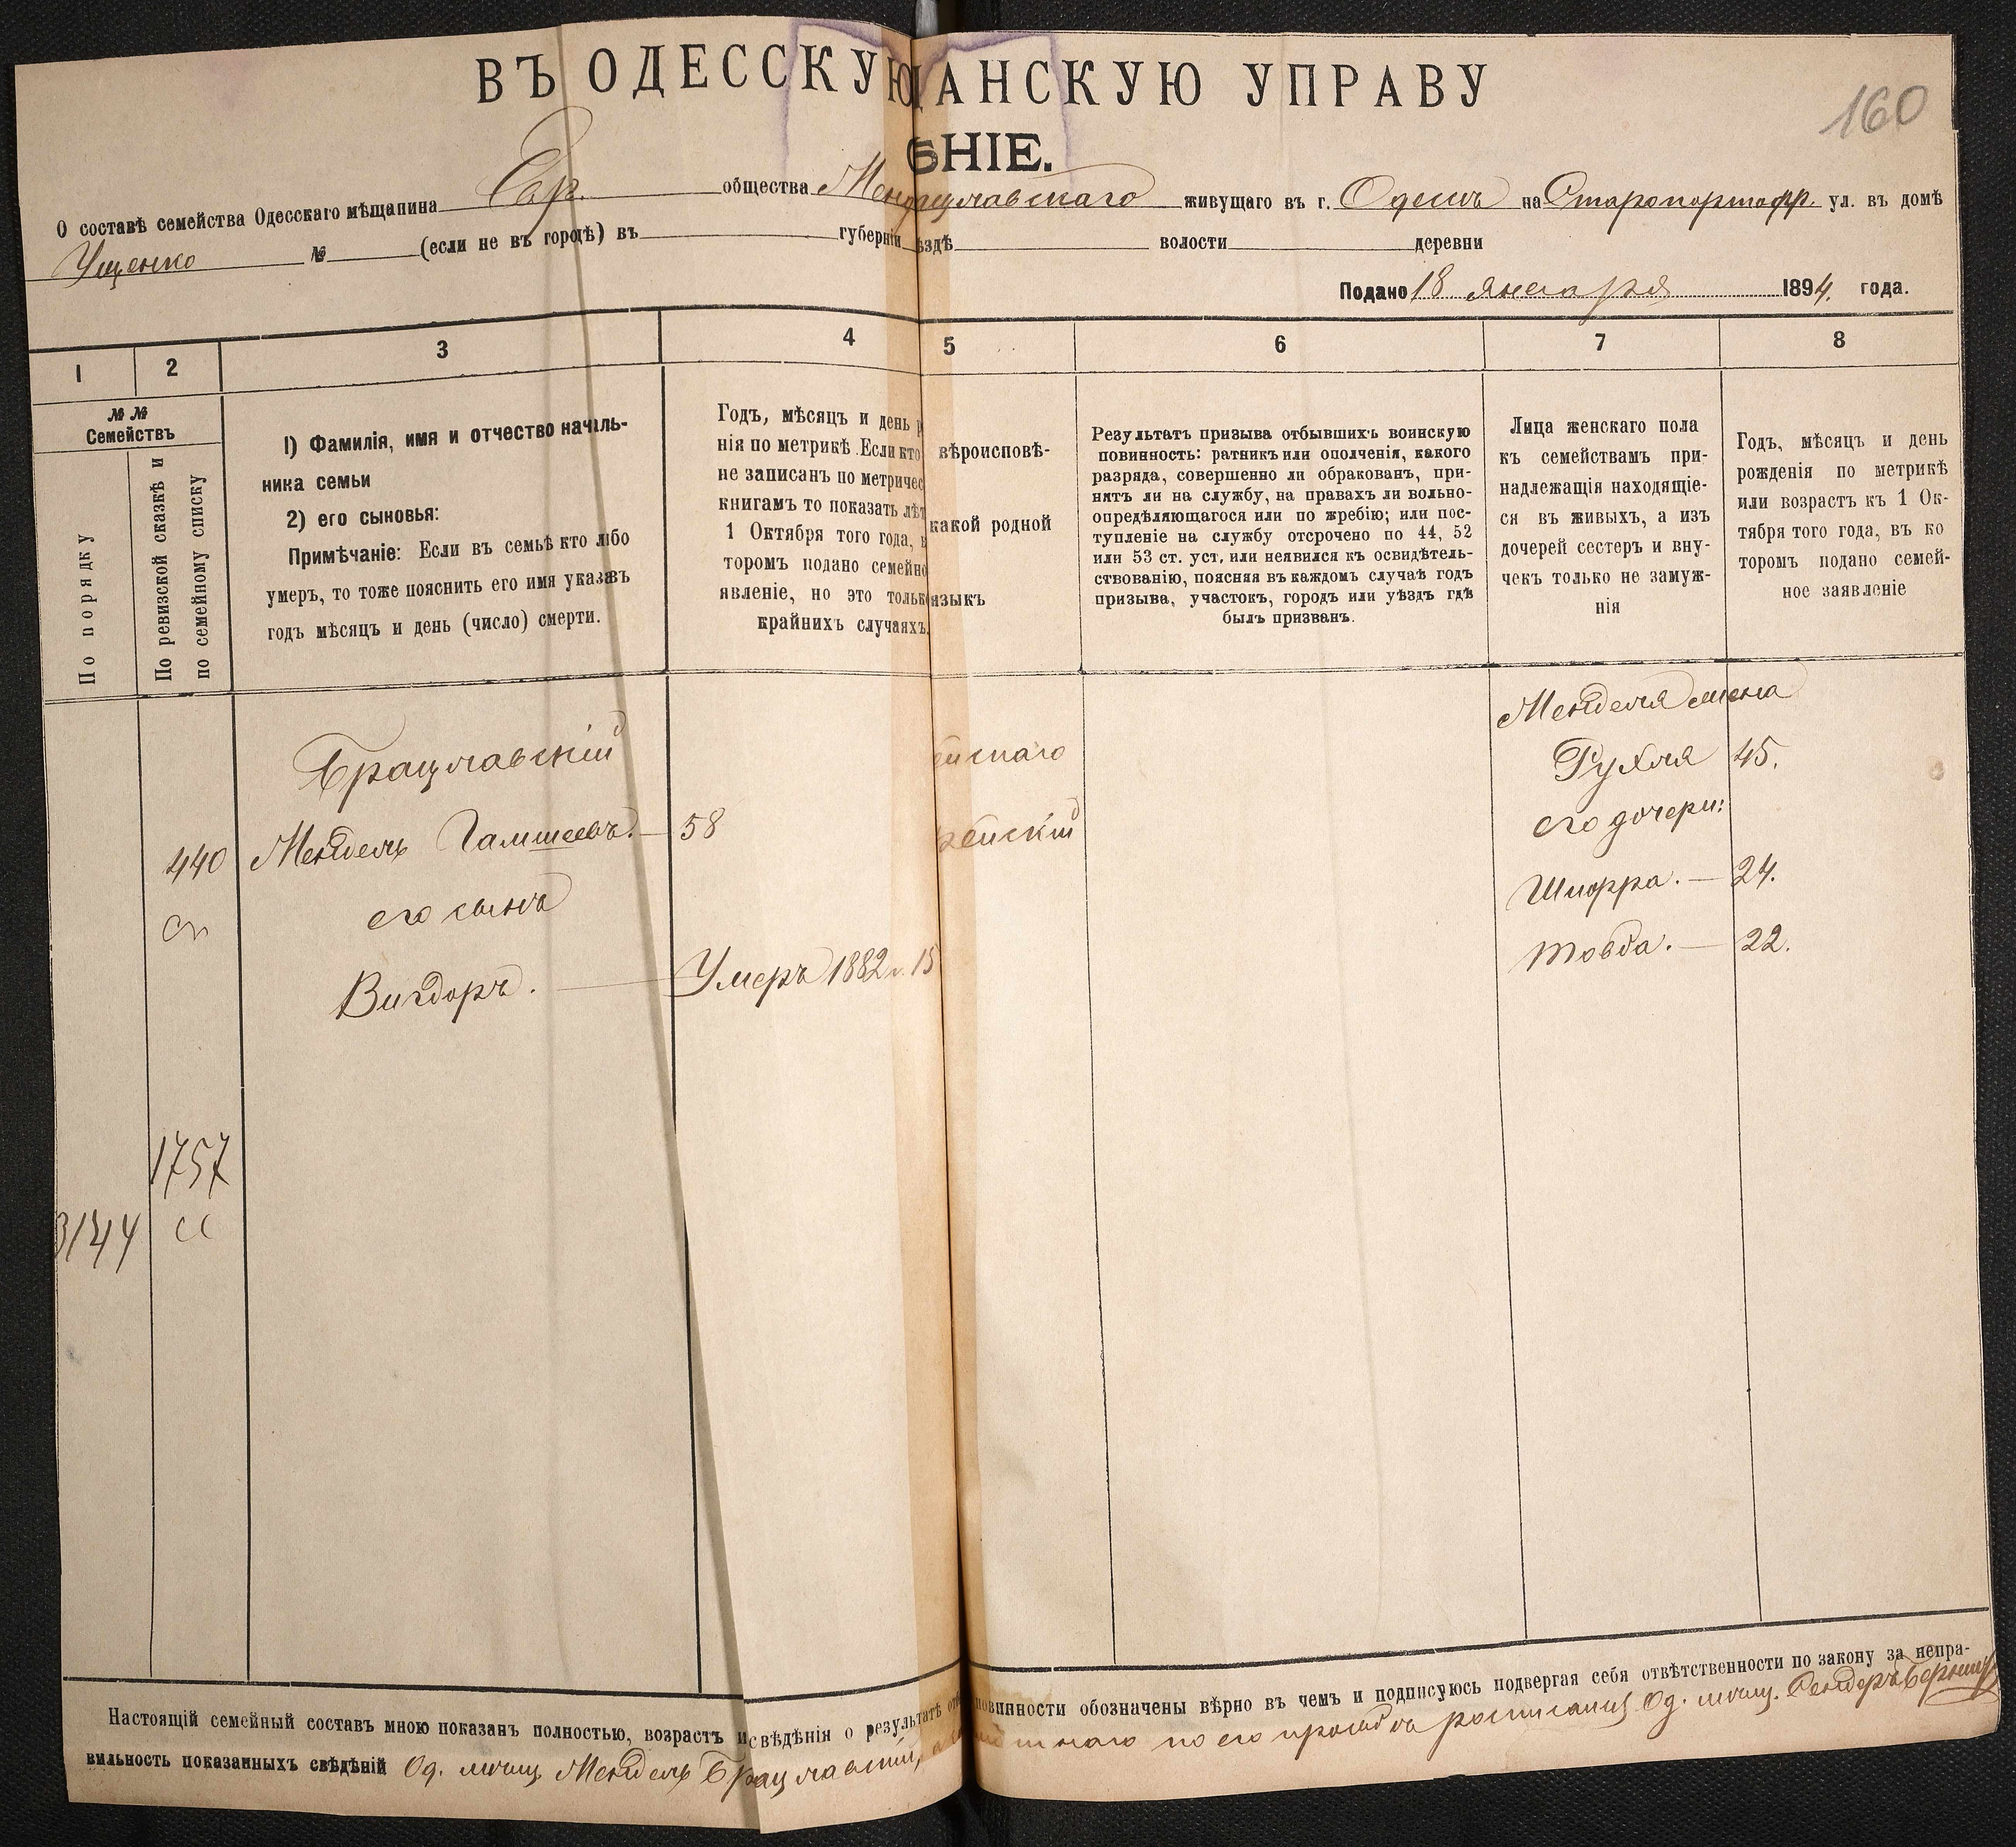 ВЪ ОДЕССКУЮ ЩАНСКУЮ УПРАВУ
160
ѢНІЕ.
О составѣ семейства Одесскаго мѣщанина Евр. общества живущаго въ г. Одессѣ на Старопортофр. ул. въ домѣ
Ущенко № (если не въ городѣ) въ губерніи ѣздѣ волости деревни
Подано 18 января 1894. года.
1 2 3 4 5 6 7 8
№ №
Семействъ
По порядку
По ревизской сказкѣ и
по семейному списку
1) Фамилія, имя и отчество началь-
ника семьи
2) его сыновья:
Примѣчаніе: Если въ семьѣ кто либо
умеръ, то тоже пояснить его имя указавъ
годъ мѣсяцъ и день (число) смерти.
Годъ, мѣсяцъ и день р
нія по метрикѣ. Если кто
не записанъ по метричес
книгамъ то показать лѣт
1 Октября того года, в
торомъ подано семейно
явленіе, но это только
крайнихъ случаяхъ.
вѣроисповѣ-
какой родной
языкъ
Результатъ призыва отбывшихъ воинскую
повинность: ратникъ или ополченія, какого
разряда, совершенно ли обракованъ, при-
нятъ ли на службу, на правахъ ли вольно-
опредѣляющагося или по жребію; или пос-
тупленіе на службу отсрочено по 44, 52
или 53 ст. уст. или неявился къ освидѣтель-
ствованію, поясняя въ каждомъ случаѣ годъ
призыва, участокъ, городъ или уѣздъ гдѣ
былъ призванъ.
Лица женскаго пола
къ семействамъ при-
надлежащія находящіе-
ся въ живыхъ, а изъ
дочерей сестеръ и вну-
чекъ только не замуж-
нія
Годъ, мѣсяцъ и день
рожденія по метрикѣ
или возрастъ къ 1 Ок-
тября того года, въ ко
торомъ подано семей-
ное заявленіе
Менделя жена
Брацлавскій ейскаго Рухля 45.
440 Мендель Гамшеевъ. — 58 рейскій его дочери:
сп его сынъ Шифра. — 24.
Вигдоръ. — Умеръ 1882 г. 15 Товба. — 22.
1757
3144 сс
Настоящій семейный составъ мною показанъ полностью, возрастъ и свѣдѣнія о результатѣ отб повинности обозначены вѣрно въ чемъ и подписуюсь подвергая себя отвѣтственности по закону за непра-
вильность показанныхъ свѣдѣній Од. мѣщ. Мендель Брацлавскій, а по его просьбѣ росписался Од. мѣщ. Сендеръ